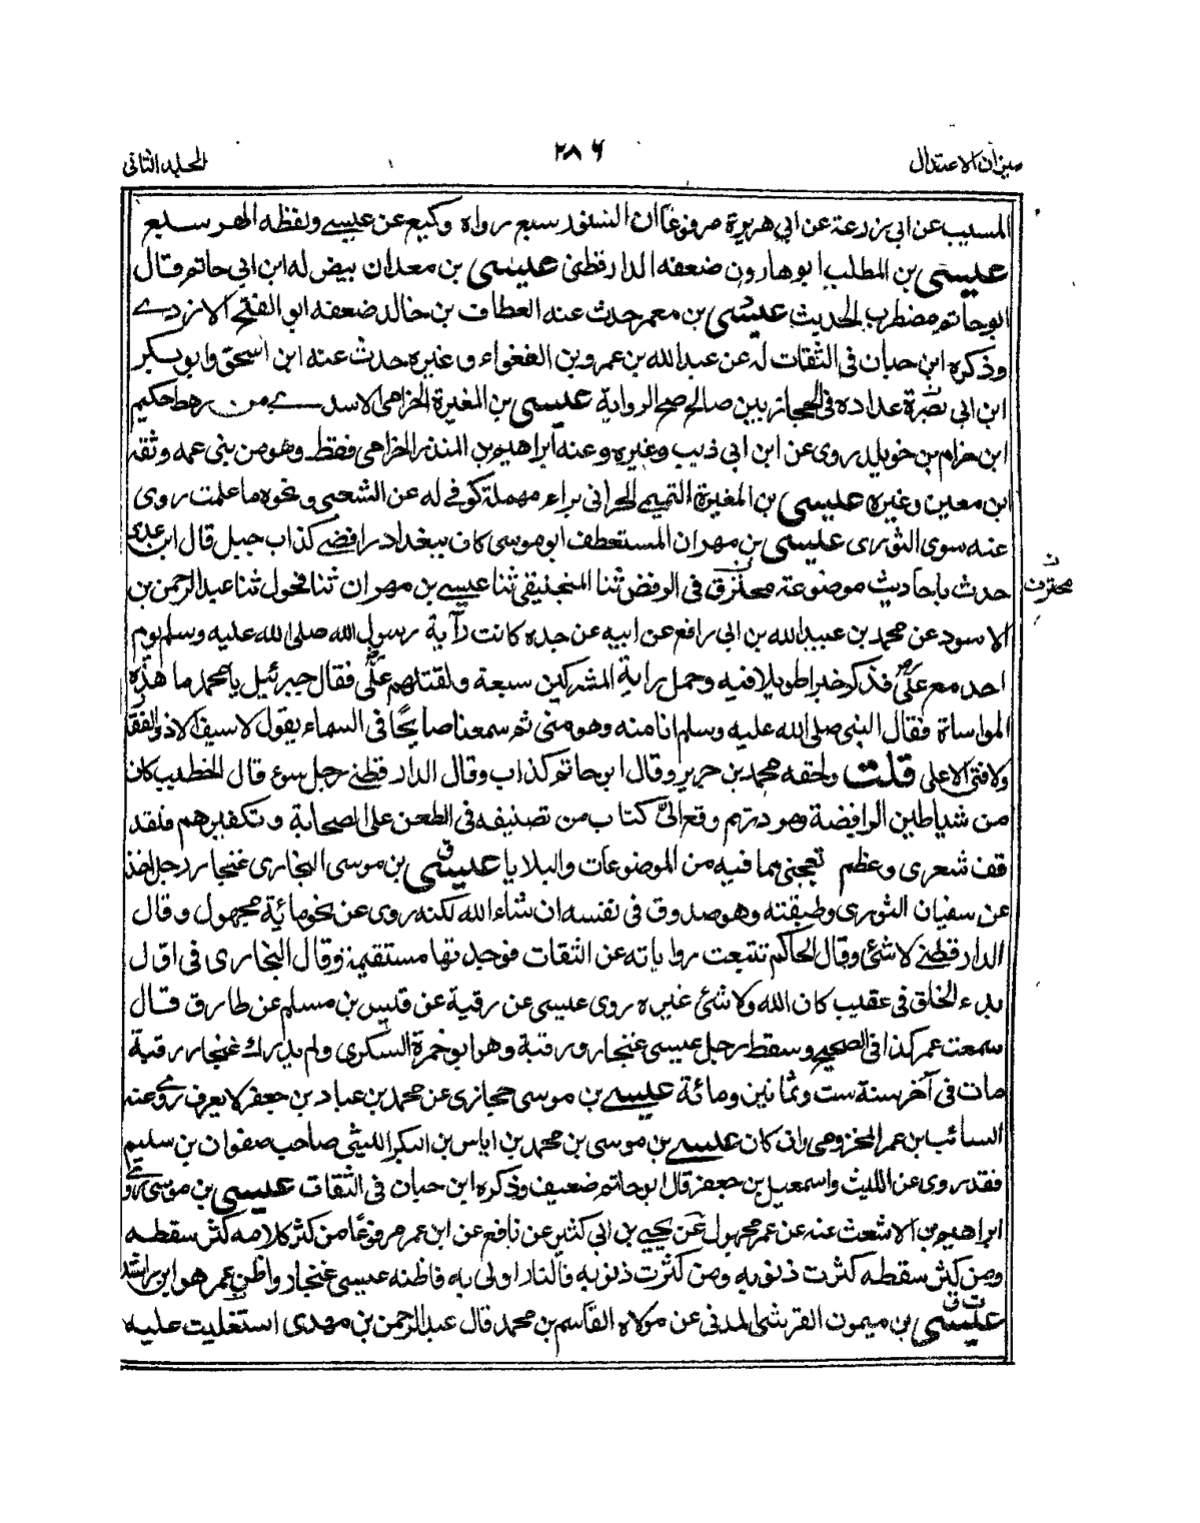 ميزان الاعتدال
٢٨٦
المجلد الثاني
المسيب عن ابي زرعة عن ابي هريرة مرفوعا ان السنور سبع رواه وكيع عن عيسى ولفظه الهر سبع
عيسى بن المطلب ابو هارون ضعفه الدارقطني عيسى بن معدان بيض له ابن ابي حاتم وقال
ابو حاتم مضطرب الحديث عيسى بن معمر حدث عنه العطاف بن خالد ضعفه ابو الفتح الازدي
وذكره ابن حبان في الثقات له عن عبد الله بن عمرو بن الفغواء وغيره حدث عنه ابن اسحق وابو بكر
ابن ابي عداده في الحجازيين صالح الرواية عيسى بن المغيرة الحزامي الاسدي من رهط حكيم
ابن حزام بن خويلد روى عن ابن ابي ذيب وغيره وعنه ابراهيم بن المنذر الحزامي فقط وهو من بني عمه وثقه
ابن معين وغيره عيسى بن المغيرة التميمي الحراني براء مهملة كوفي له عن الشعبي ونحوه ما علمت روى
عنه سوى الثوري عيسى بن مهران المستعطف ابو موسى كان ببغداد رافضي كذاب جبل قال ابن عدي
حدث باحاديث موضوعة محترق في الرفض ثنا المنجنيقي ثنا عيسى بن مهران ثنا مخول ثنا عبد الرحمن بن
محترق
الاسود عن محمد بن عبيد الله بن ابي رافع عن ابيه عن جده كانت رآية رسول الله صلى الله عليه وسلم يوم
احد مع علي فذكر خبرا طويلا فيه وحمل راية المشركين سبعة ولقتلهم علي فقال جبرئيل يا محمد ما هذه
المواساة فقال النبي صلى الله عليه وسلم انا منه وهو مني ثم سمعنا صايحا في السماء يقول لا سيف الا ذو الفقار
ولا فتى الا علي قلت ولحقه محمد بن جرير وقال ابو حاتم كذاب وقال الدارقطني رجل سوء قال الخطيب كان
من شياطين الرافضة ومردتهم وقع الي كتاب من تصنيفه في الطعن على الصحابة وتكفيرهم فلقد
قف شعري وعظم تعجبي مما فيه من الموضوعات والبلايا عيسى بن موسى البخاري غنجار رجل اخذ
عن سفيان الثوري وطبقته وهو صدوق في نفسه ان شاء الله لكنه روى عن نحو مائة مجهول وقال
الدارقطني لا شئ وقال الحاكم تتبعت رواياته عن الثقات فوجدتها مستقيمة وقال البخاري في اول
بدء الخلق في عقيب كان الله ولا شئ غيره روى عيسى عن رقبة عن قيس بن مسلم عن طارق قال
سمعت عمر كذا في الصحيح وسقط رجل بين عيسى غنجار ورقبة وهو ابو حمزة السكري ولم يدرك غنجار رقبة
مات في آخر سنة ست وثمانين ومائة عيسى بن موسى حجازي عن محمد بن عباد بن جعفر لا يعرف روى عنه
السائب بن عمر المخزومي وان كان عيسى بن موسى بن محمد بن اياس بن البكير الليثي صاحب صفوان بن سليم
فقد روى عن الليث واسمعيل بن جعفر قال ابو حاتم ضعيف وذكره ابن حبان في الثقات عيسى بن موسى روى
ابراهيم بن الاشعث عنه عن عمر مجهول عن يحيى بن ابي كثير عن نافع عن ابن عمر مرفوعا من كثر كلامه كثر سقطه
ومن كثر سقطه كثرت ذنوبه ومن كثرت ذنوبه فالنار اولى به فاظنه عيسى غنجار واظن عمر هو ابن راشد
عيسى بن ميمون القرشي المدني عن مولاه القاسم بن محمد قال عبد الرحمن بن مهدي استعليت عليه